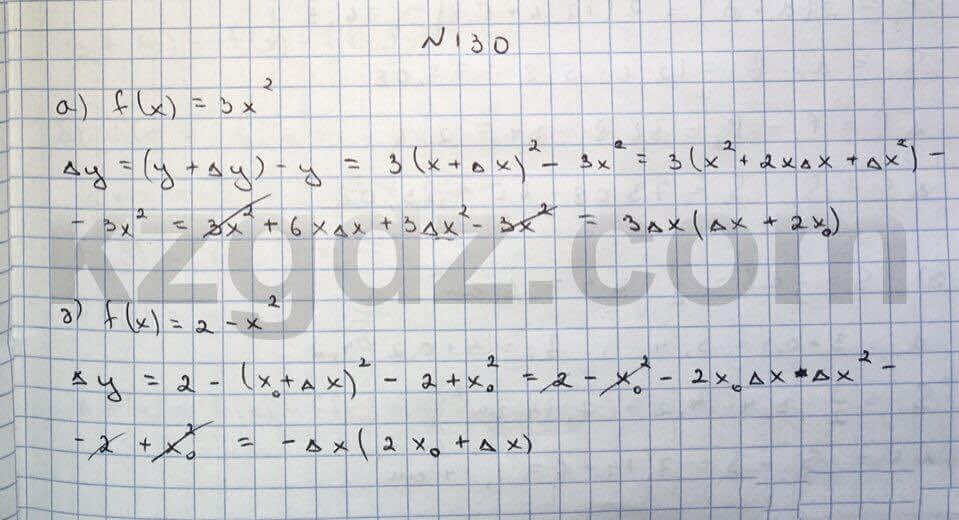 N130
а) f(x) = 3x²
Δy = (y + Δy) - y = 3(x + Δx)² - 3x² = 3(x² + 2xΔx + Δx²) -
- 3x² = 3x² + 6xΔx + 3Δx² - 3x² = 3Δx(Δx + 2x₀)
kzgdz.com
г) f(x) = 2 - x²
Δy = 2 - (x₀ + Δx)² - 2 + x₀² = 2 - x₀² - 2x₀Δx - Δx² -
- 2 + x₀² = -Δx(2x₀ + Δx)